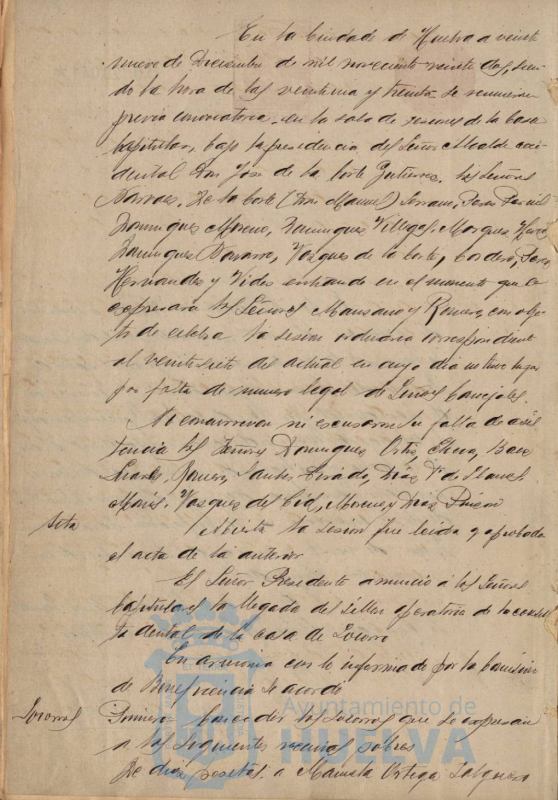 En la Ciudad de Huelva a veinte
nueve de Diciembre de mil novecientos veinte dos, sien-
do la hora de las veintiuna y treinta se reunieron
previa convocatoria, en la sala de sesiones de la Casa
Capitular, bajo la presidencia del Señor Alcalde acci-
dental Don José de la Corte Gutierrez, los Señores
Narvaez, De la Corte (Don Manuel) Serrano, Perez
Dominguez Moreno, Dominguez Villegas, Marquez
Dominguez Navarro, Vazquez de la Corte, Cordero,
Hernandez y Vides entrando en el momento que se
expresará los Señores Manzano y Romero, con obje-
to de celebrar la sesión ordinaria correspondiente
al veintisiete del actual en cuyo dia no tuvo lugar
por falta de numero legal de Señores Concejales.
No concurrieron ni escusaron su falta de asis
tencia los Señores Dominguez Ortiz,
Vazquez del Cid, Moreno y Diaz
Acta
Abierta la sesión fue leida y aprobada
el acta de la anterior
El Señor Presidente anunció á los Señores
Capitulares la llegada del sillon operatorio de la consul
ta dental de la casa de Socorro
En armonia con lo informado por la Comisión
de Beneficencia se acordó
Socorros
Primero conceder los Socorros que se expresan
a los siguientes vecinos pobres
De diez pesetas, a Manuela Ortega
Ayuntamiento de
HUELVA